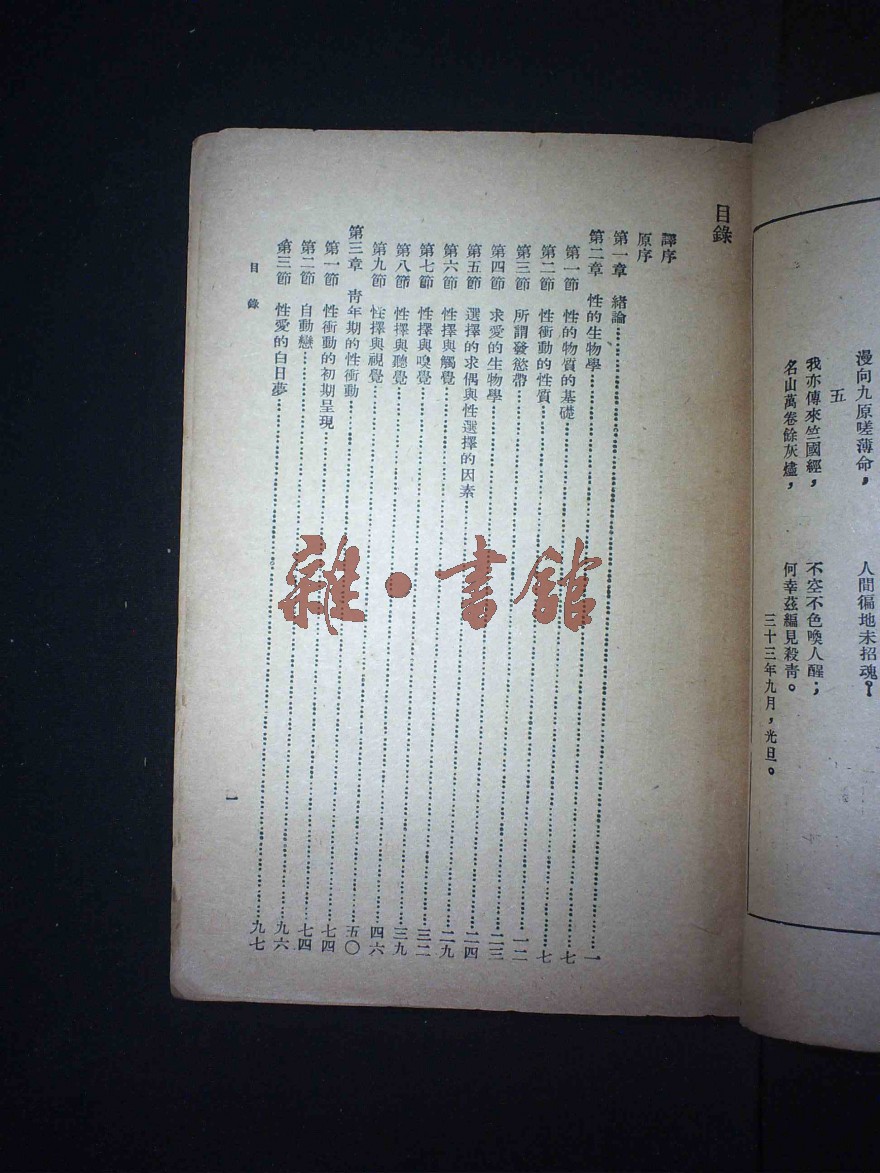 漫向九原嗟薄命，　人間徧地未招魂！
五
我亦傳來竺國經，　不空不色喚人醒；
名山萬卷餘灰燼，　何幸茲編見殺青。
三十三年九月，光旦。
目錄
譯序
原序
第一章　緒論……一
第二章　性的生物學……七
第一節　性的物質的基礎……七
第二節　性衝動的性質……一二
第三節　所謂發慾帶……二三
第四節　求愛的生物學……二四
第五節　選擇的求偶與性選擇的因素……二九
第六節　性擇與觸覺……三二
第七節　性擇與嗅覺……三九
第八節　性擇與聽覺……四六
第九節　性擇與視覺……五〇
第三章　青年期的性衝動……七四
第一節　性衝動的初期呈現……七四
第二節　自動戀……九六
第三節　性愛的白日夢……九七
目錄
一
雜・書館